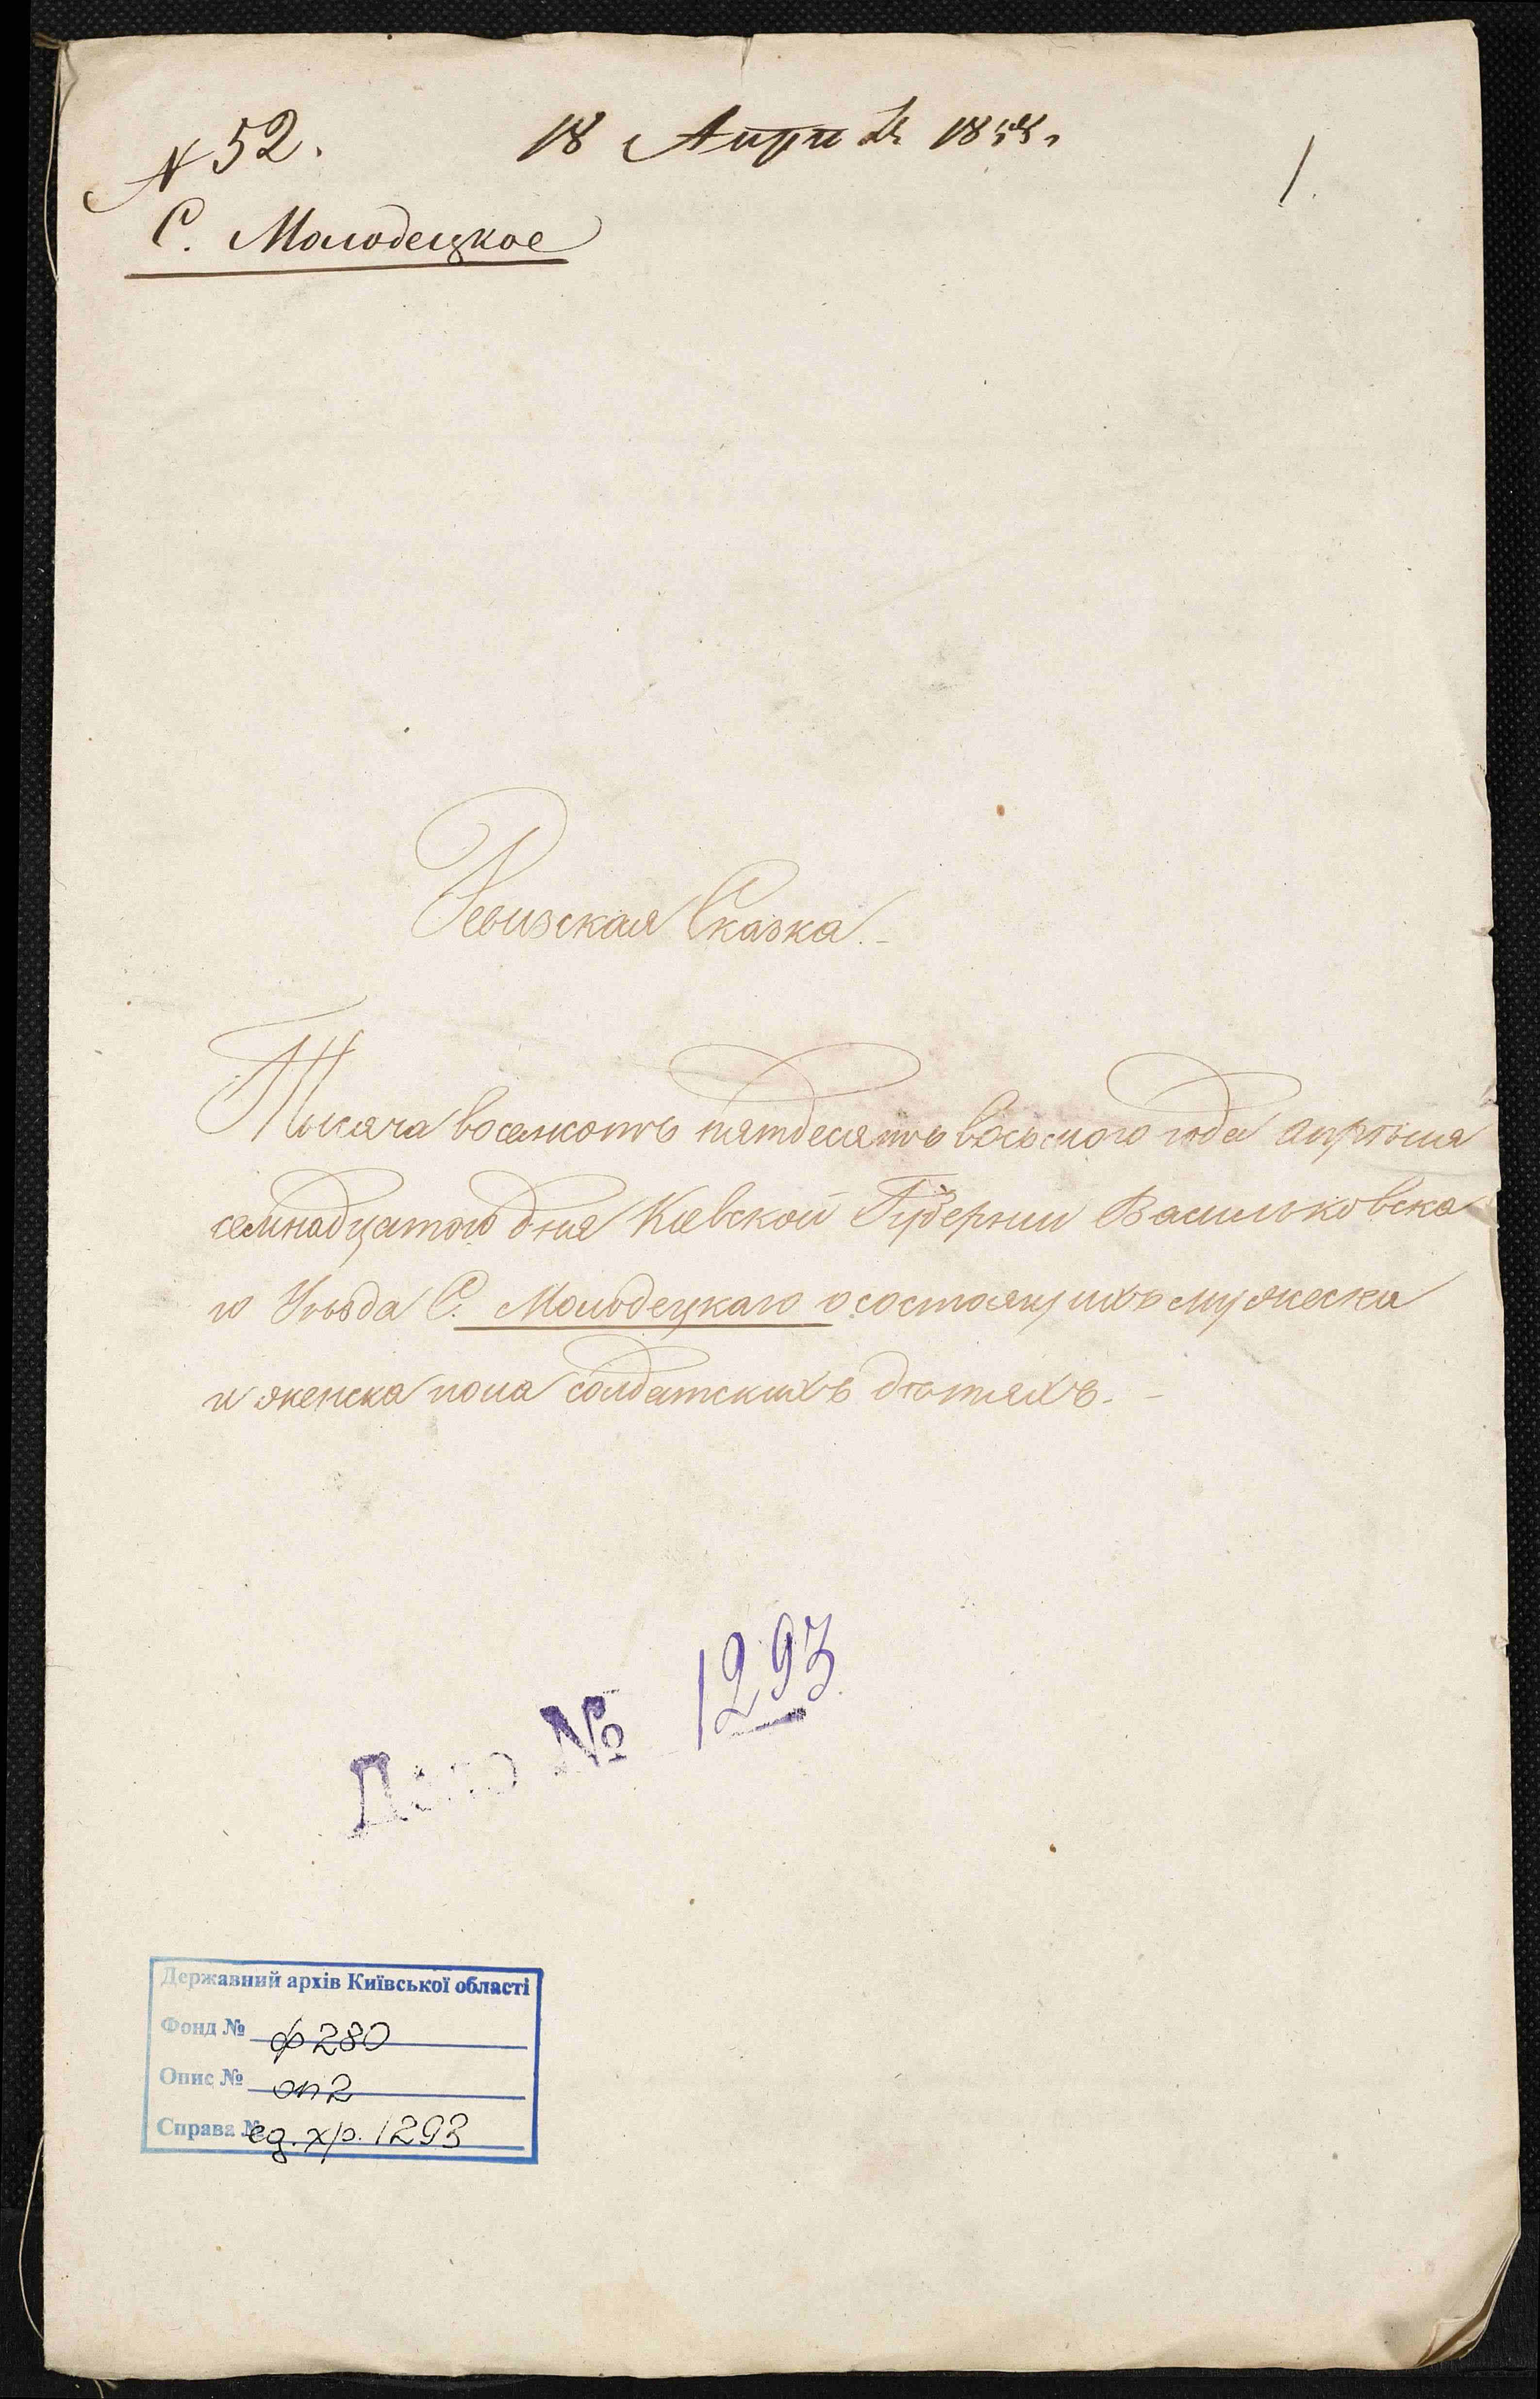 № 52.
18 Апреля 1858 г.
1.
С. Молодецкое
Ревизская Сказка.-
Тысяча восемсотъ пятдесятъ восьмого года апрѣля
семнадцатого дня Кіевской Губерніи Васильковска
го Уѣзда С. Молодецкаго о состоящихъ мужеска
и женска пола солдатскихъ дѣтяхъ.-
Дело № 1293
Державний архів Київської області
Фонд № ф 280
Опис № оп 2
Справа № ед. хр. 1293